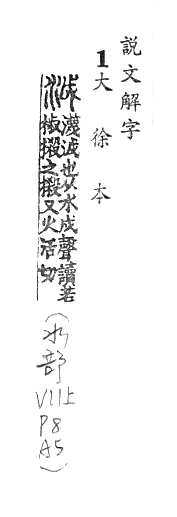 説文解字
1大徐本
泧 瀎泧也从水戉聲讀若
椒樧之樧又火活切
(水部
VII上
P8
A5)